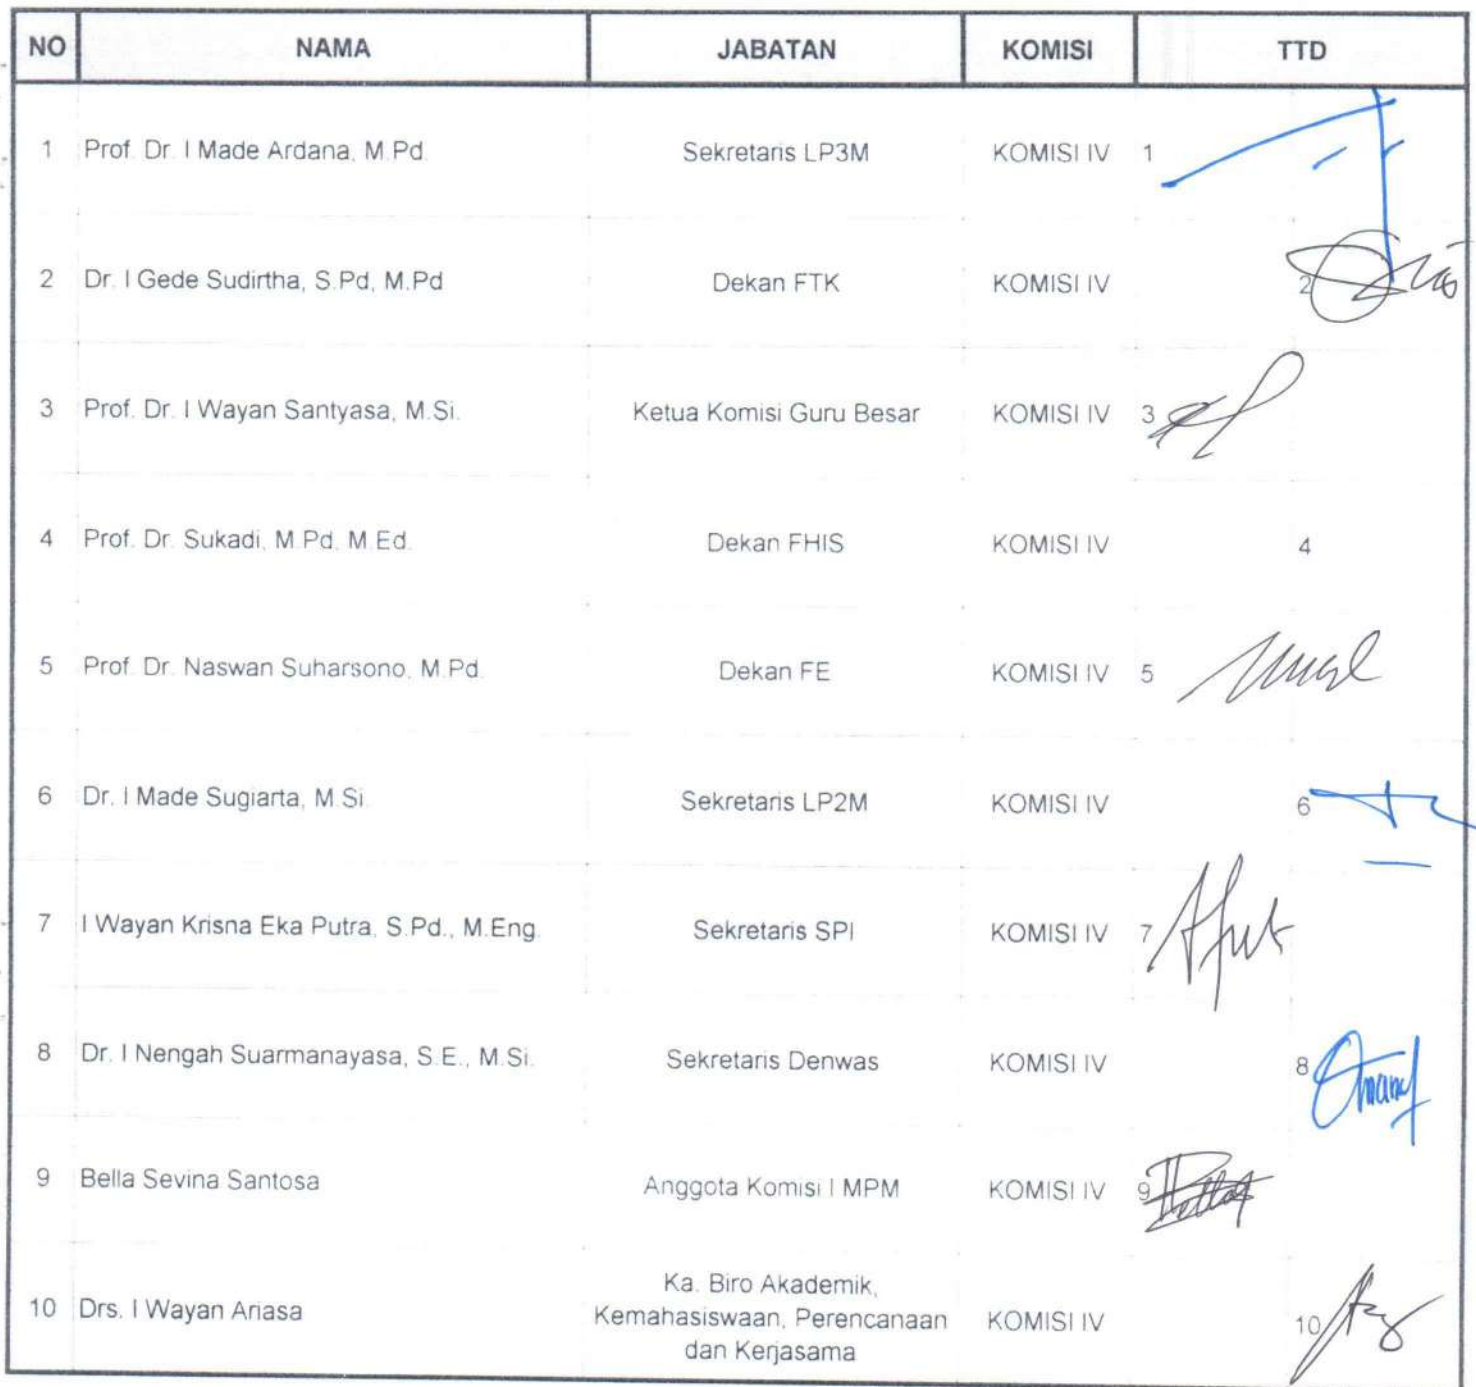 NO NAMA JABATAN KOMISI TTD
1 Prof. Dr. I Made Ardana, M.Pd. Sekretaris LP3M KOMISI IV 1
2 Dr. I Gede Sudirtha, S.Pd, M.Pd Dekan FTK KOMISI IV 2
3 Prof. Dr. I Wayan Santyasa, M.Si. Ketua Komisi Guru Besar KOMISI IV 3
4 Prof. Dr. Sukadi, M.Pd, M.Ed. Dekan FHIS KOMISI IV 4
5 Prof. Dr. Naswan Suharsono, M.Pd. Dekan FE KOMISI IV 5
6 Dr. I Made Sugiarta, M.Si. Sekretaris LP2M KOMISI IV 6
7 I Wayan Krisna Eka Putra, S.Pd., M.Eng. Sekretaris SPI KOMISI IV 7
8 Dr. I Nengah Suarmanayasa, S.E., M.Si. Sekretaris Denwas KOMISI IV 8
9 Bella Sevina Santosa Anggota Komisi I MPM KOMISI IV 9
10 Drs. I Wayan Ariasa Ka. Biro Akademik,
Kemahasiswaan, Perencanaan
dan Kerjasama KOMISI IV 10